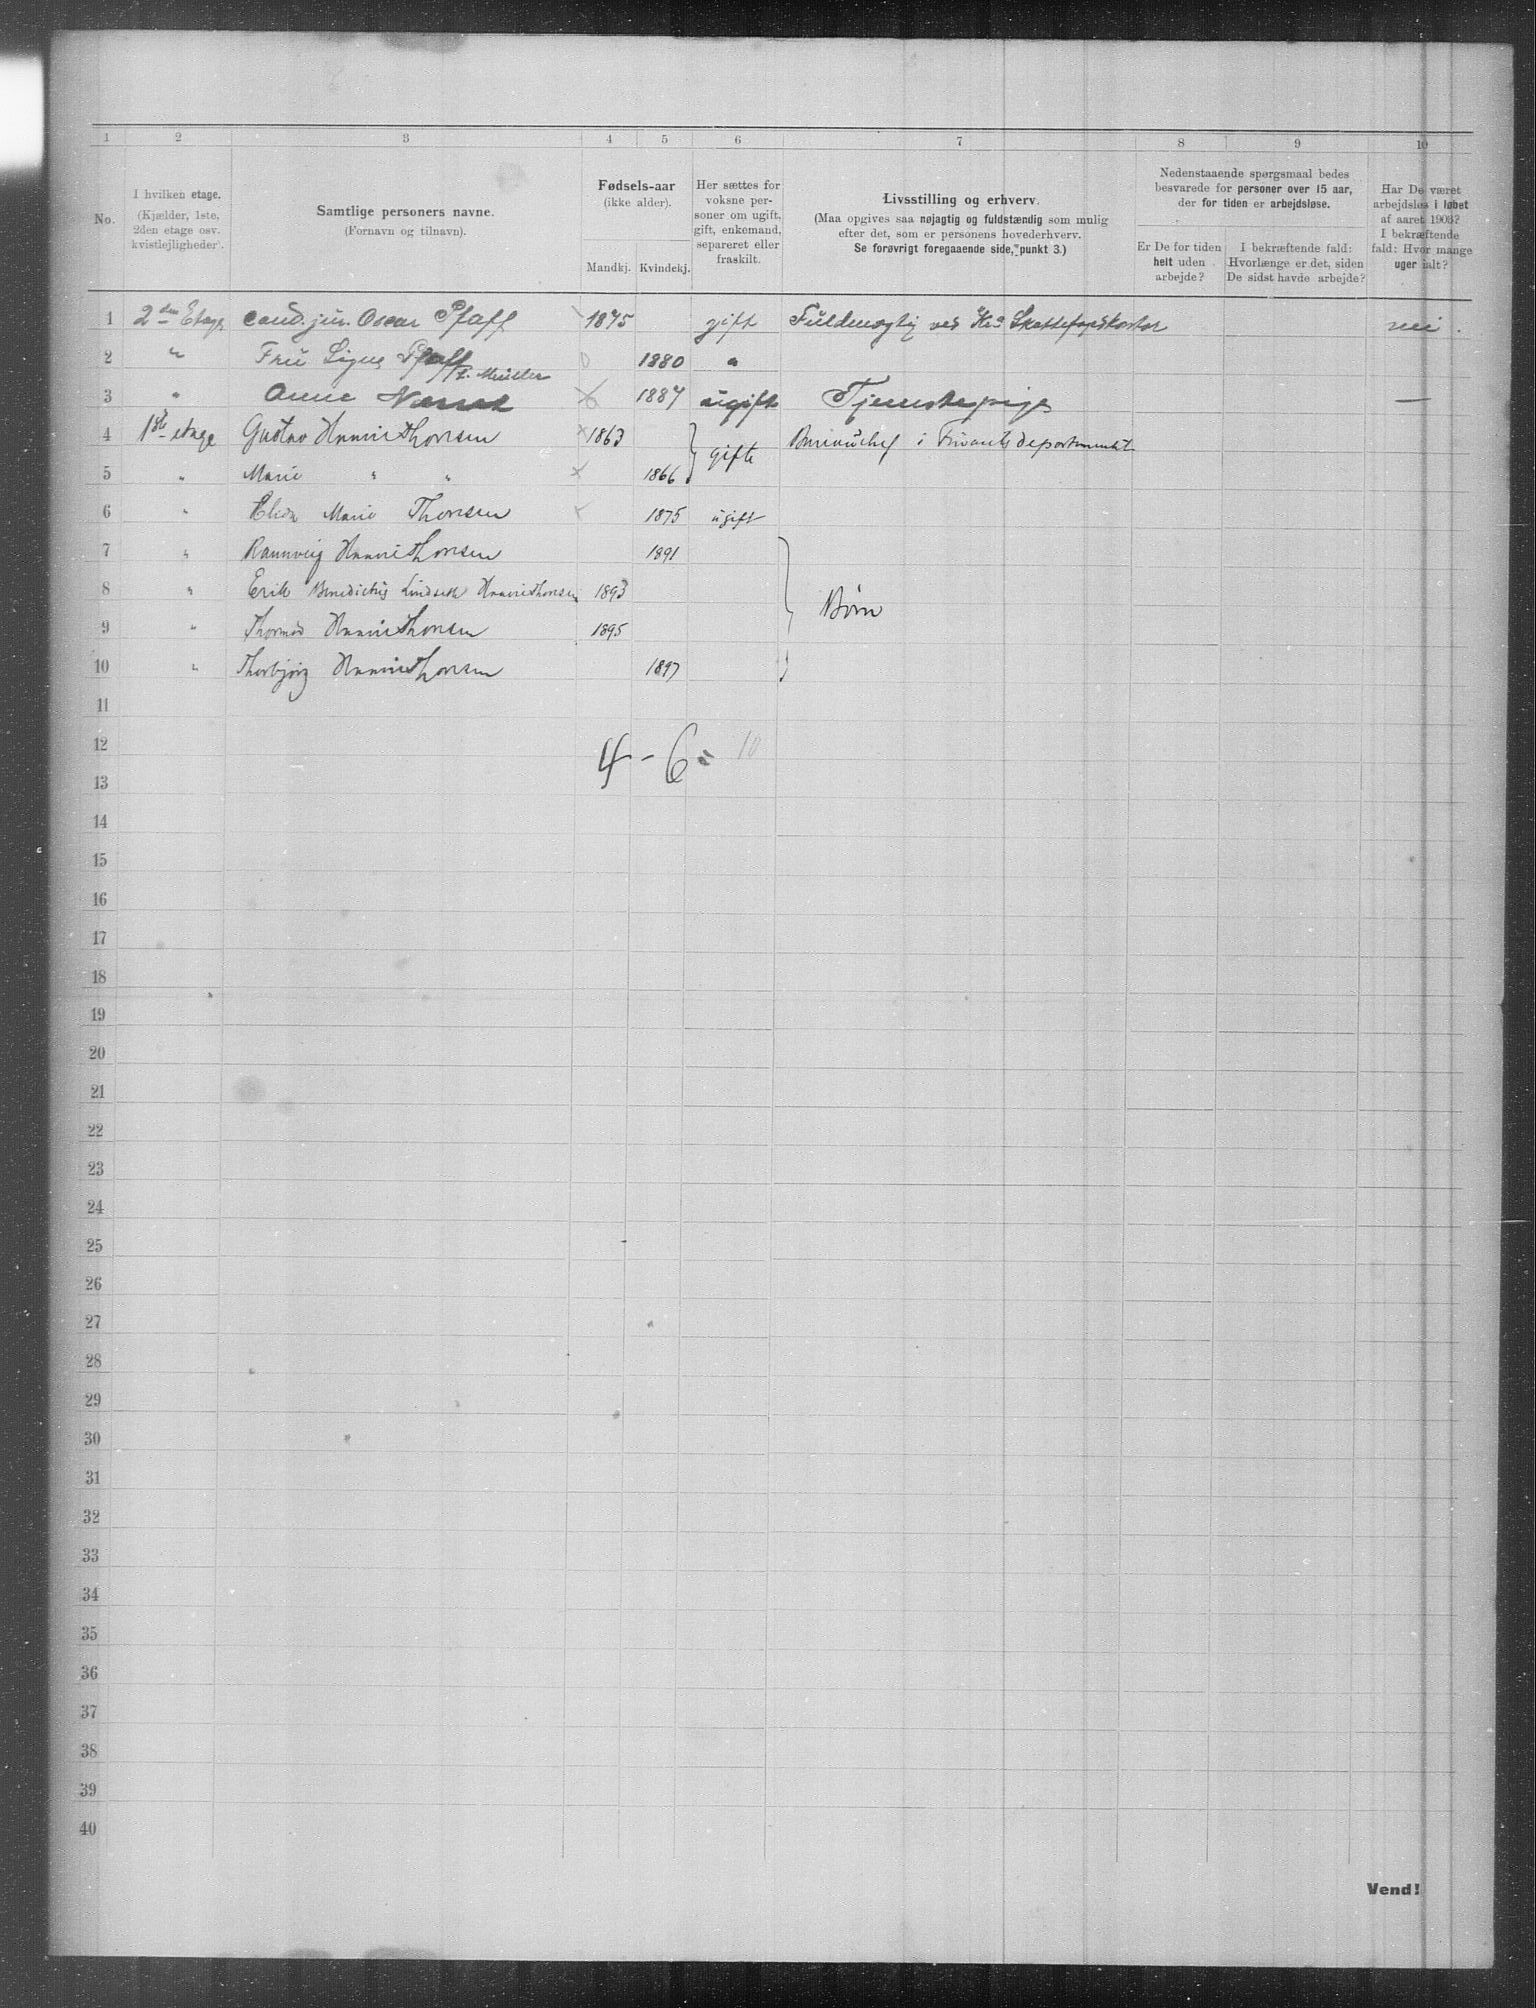 1 2 3 4 5 6 7 8 9 10
No.
I hvilken etage.
(Kjælder, 1ste,
2den etage osv.
kvistlejligheder.
Samtlige personers navne.
(Fornavn og tilnavn).
Fødsels-aar
(ikke alder).
Mandkj. Kvindekj.
Her sættes for
voksne per-
soner om ugift,
gift, enkemand,
separeret eller
fraskilt.
Livsstilling og erhverv.
(Maa opgives saa nøjagtig og fuldstændig som mulig
efter det, som er personens hovederhverv.
Se forøvrigt foregaaende side, punkt 3.)
Nedenstaaende spørgsmaal bedes
besvarede for personer over 15 aar,
der for tiden er arbejdsløse.
Er De for tiden
helt uden
arbejde?
I bekræftende fald:
Hvorlænge er det, siden
De sidst havde arbejde?
Har De været
arbejdsløs i løbet
af aaret 1903?
I bekræftende
fald: Hvor mange
uger ialt?
1 2den Etage cand. jur. Oscar Pfaff 1875 gift Fuldmægtig ved Kra nei.
2 " Fru Signe Pfaff 1880 "
f. Müller
3 " Anne 1887 ugift Tjenestepige —
4 1ste etage Gustav Thonsen 1863 gifte Bureauchef i Finantsdepartementet
5 " Marie " " 1866
6 " Marie Thonsen 1875 ugift
7 " Rannveig 1891
8 " Erik Benedictus Lindseth 1893 Børn
9 " Thormod 1895
10 " Thorbjørg 1897
11
12 4 - 6 = 10
13
14
15
16
17
18
19
20
21
22
23
24
25
26
27
28
29
30
31
32
33
34
35
36
37
38
39
40
Vend!